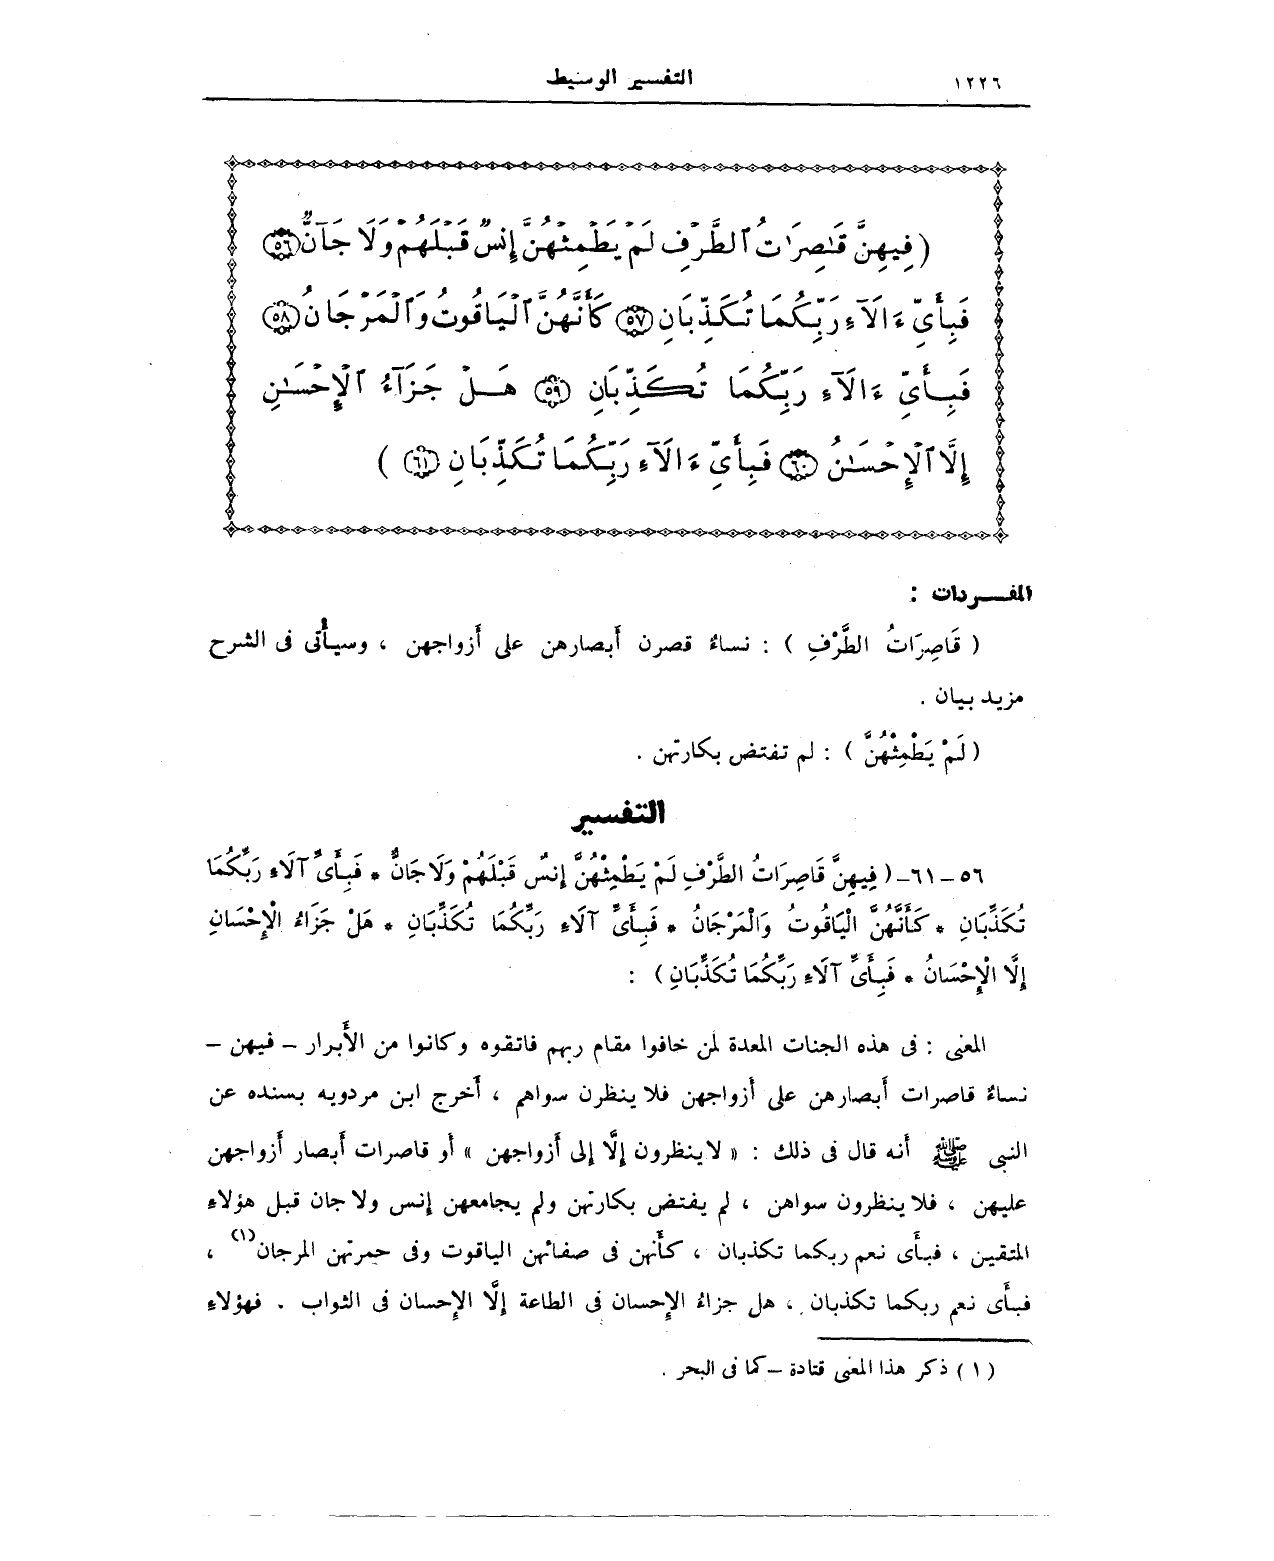 ١٢٢٦ التفسير الوسيط
( فِيهِنَّ قَٰصِرَٰتُ ٱلطَّرْفِ لَمْ يَطْمِثْهُنَّ إِنسٌ قَبْلَهُمْ وَلَا جَآنٌّ ٥٦
فَبِأَىِّ ءَالَآءِ رَبِّكُمَا تُكَذِّبَانِ ٥٧ كَأَنَّهُنَّ ٱلْيَاقُوتُ وَٱلْمَرْجَانُ ٥٨
فَبِأَىِّ ءَالَآءِ رَبِّكُمَا تُكَذِّبَانِ ٥٩ هَلْ جَزَآءُ ٱلْإِحْسَٰنِ
إِلَّا ٱلْإِحْسَٰنُ ٦٠ فَبِأَىِّ ءَالَآءِ رَبِّكُمَا تُكَذِّبَانِ ٦١ )
المفـــردات :
( قَاصِرَاتُ الطَّرْفِ ) : نساءٌ قصرن أَبصارهن على أَزواجهن ، وسيأْتى فى الشرح
مزيد بيان .
( لَمْ يَطْمِثْهُنَّ ) : لم تفتض بكارتهن .
التفسير
٥٦ – ٦١ – ( فِيهِنَّ قَاصِرَاتُ الطَّرْفِ لَمْ يَطْمِثْهُنَّ إِنسٌ قَبْلَهُمْ وَلَا جَانٌّ * فَبِأَىِّ آلَاءِ رَبِّكُمَا
تُكَذِّبَانِ * كَأَنَّهُنَّ الْيَاقُوتُ وَالْمَرْجَانُ * فَبِأَىِّ آلَاءِ رَبِّكُمَا تُكَذِّبَانِ * هَلْ جَزَاءُ الْإِحْسَانِ
إِلَّا الْإِحْسَانُ * فَبِأَىِّ آلَاءِ رَبِّكُمَا تُكَذِّبَانِ ) :
المعنى : فى هذه الجنات المعدة لمن خافوا مقام ربهم فاتقوه وكانوا من الأَبرار – فيهن –
نساءٌ قاصرات أَبصارهن على أَزواجهن فلا ينظرن سواهم ، أَخرج ابن مردويه بسنده عن
النبى ﷺ أَنه قال فى ذلك : « لا ينظرون إلَّا إلى أَزواجهن » أَو قاصرات أَبصار أَزواجهن
عليهن ، فلا ينظرون سواهن ، لم يفتض بكارتهن ولم يجامعهن إنس ولا جان قبل هؤلاءِ
المتقين ، فبأَى نعم ربكما تكذبان ، كأَنهن فى صفائهن الياقوت وفى حمرتهن المرجان(١) ،
فبأَى نعم ربكما تكذبان ، هل جزاءُ الإِحسان فى الطاعة إلَّا الإِحسان فى الثواب . فهؤلاءِ
(١) ذكر هذا المعنى قتادة – كما فى البحر .